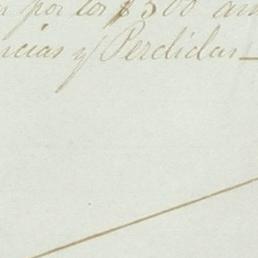 por los $500
ncias y Perdidas